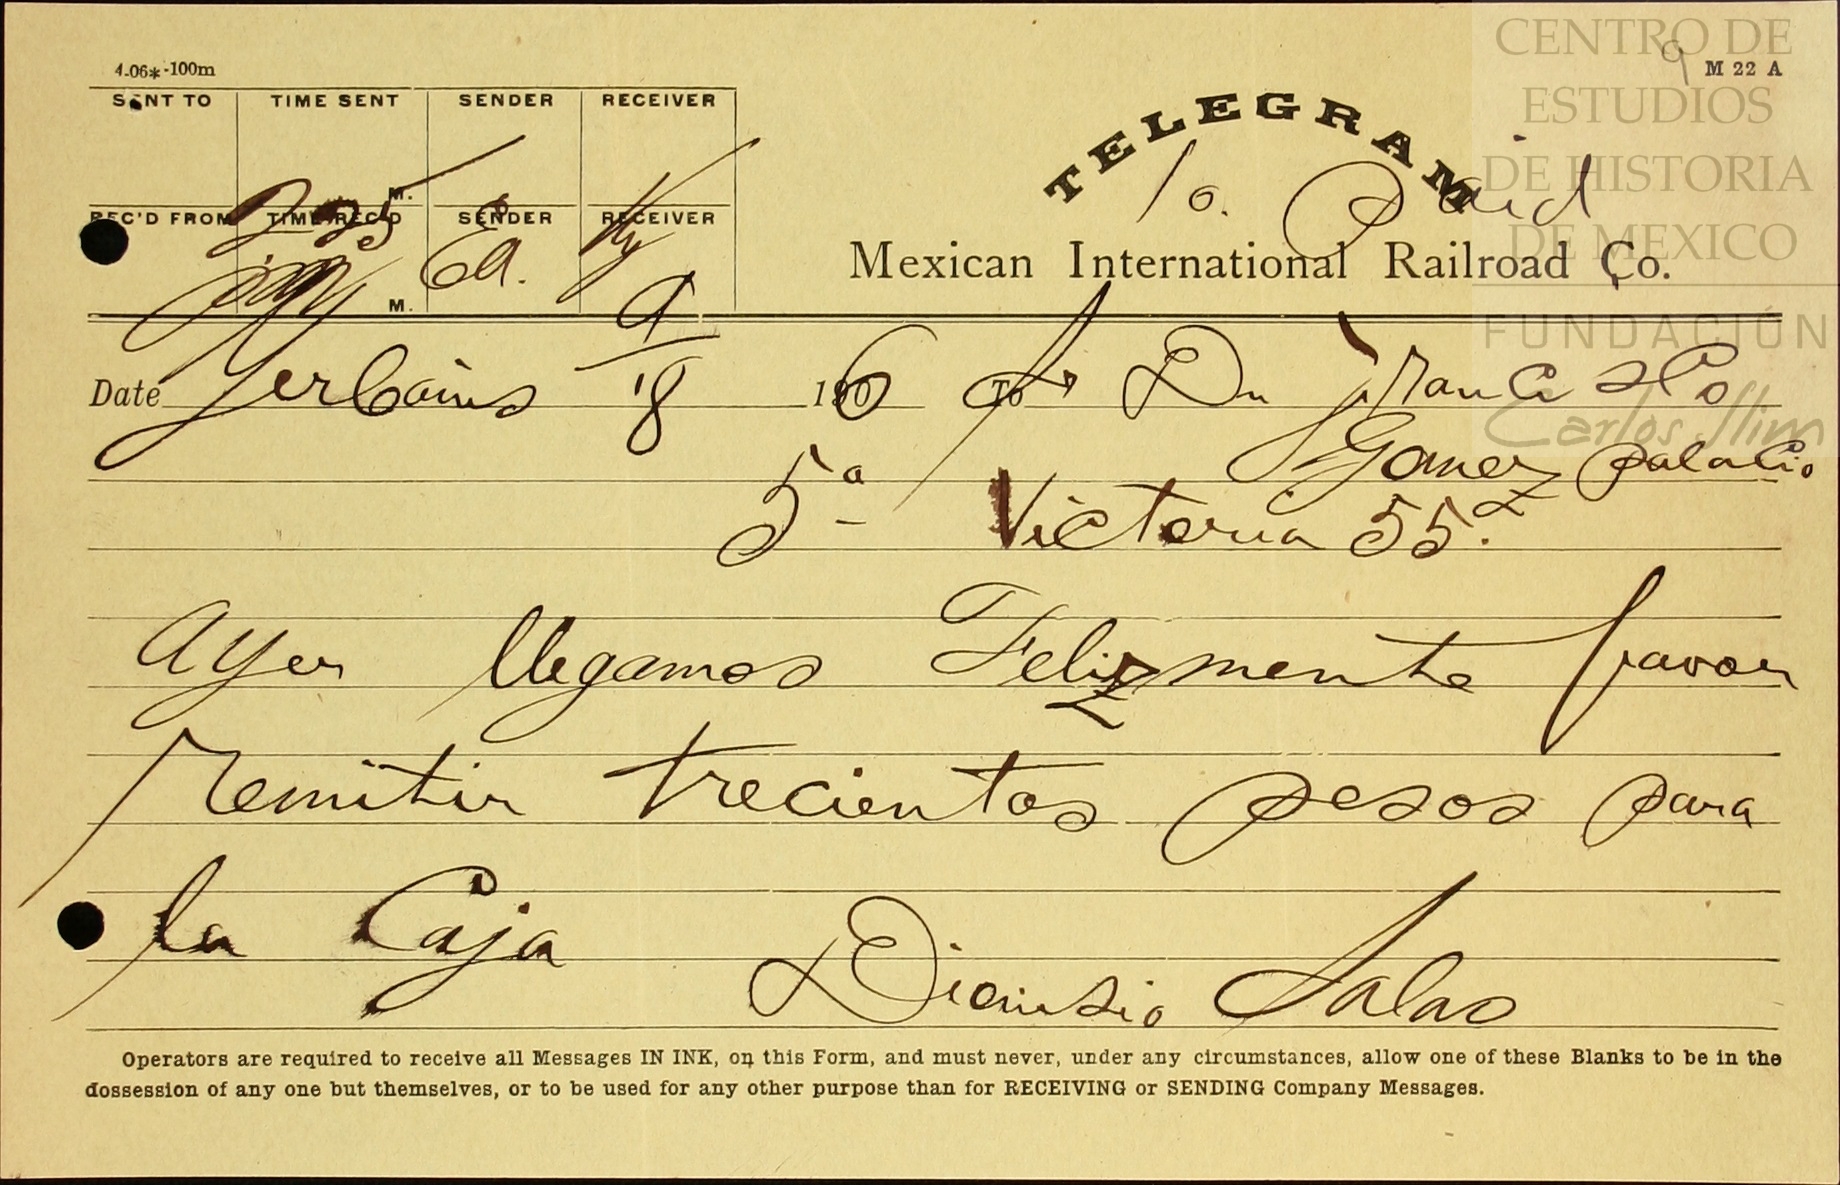 4-06*-100m
9
M 22 A
CENTRO DE
ESTUDIOS
DE HISTORIA
DE MEXICO
FUNDACIÓN
Carlos Slim
SENT TO TIME SENT SENDER RECEIVER
M.
REC'D FROM TIME REC'D SENDER RECEIVER
2 25 Ea.
M.
TELEGRAM
10. Paid
Mexican International Railroad Co.
Date Yerbanis 9/18 1906 To Dn Francisco
Gomez palacio
5a Victoria 55.
Ayer llegamos Felizmente favor
remitir trecientos pesos para
la Caja Dionisio Salas
Operators are required to receive all Messages IN INK, on this Form, and must never, under any circumstances, allow one of these Blanks to be in the
dossession of any one but themselves, or to be used for any other purpose than for RECEIVING or SENDING Company Messages.